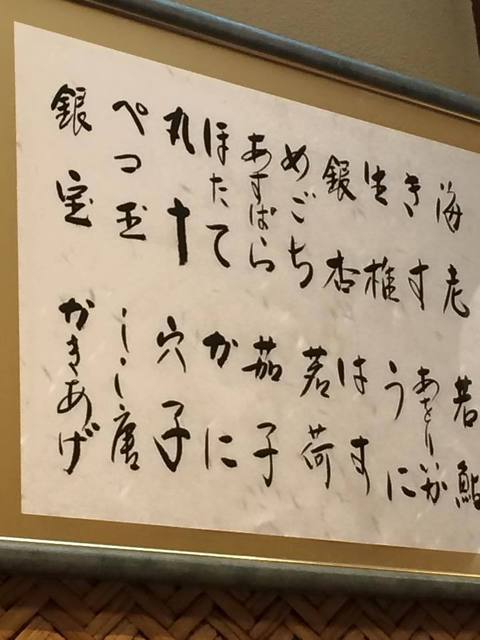 海老 若鮎
きす あをりいか
生椎 うに
銀杏 はす
めごち 茗荷
あすぱら 茄子
ほたて かに
丸十 穴子
ぺコ玉 しし唐
銀宝 かきあげ